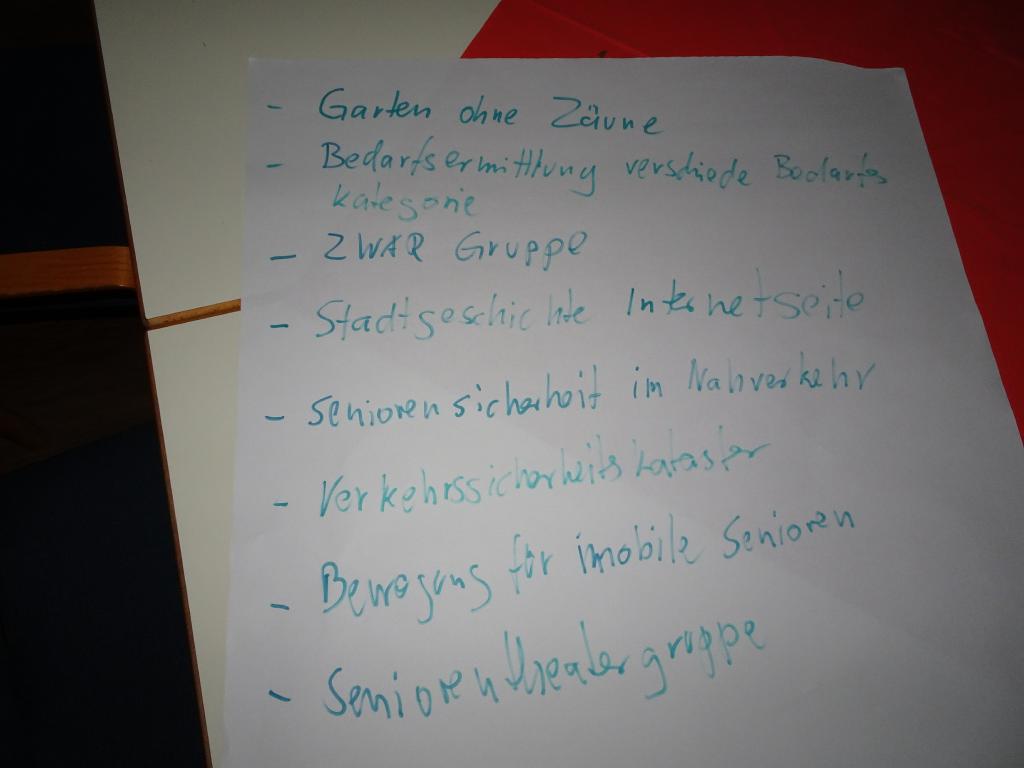 - Garten ohne Zäune
- Bedarfsermittlung verschiede Bedarfs
kategorie
- ZWAR Gruppe
- Stadtgeschichte Internetseite
- Seniorensicherheit im Nahverkehr
- Verkehrssicherheitskataster
- Bewegung für imobile Senioren
- Seniorentheatergruppe